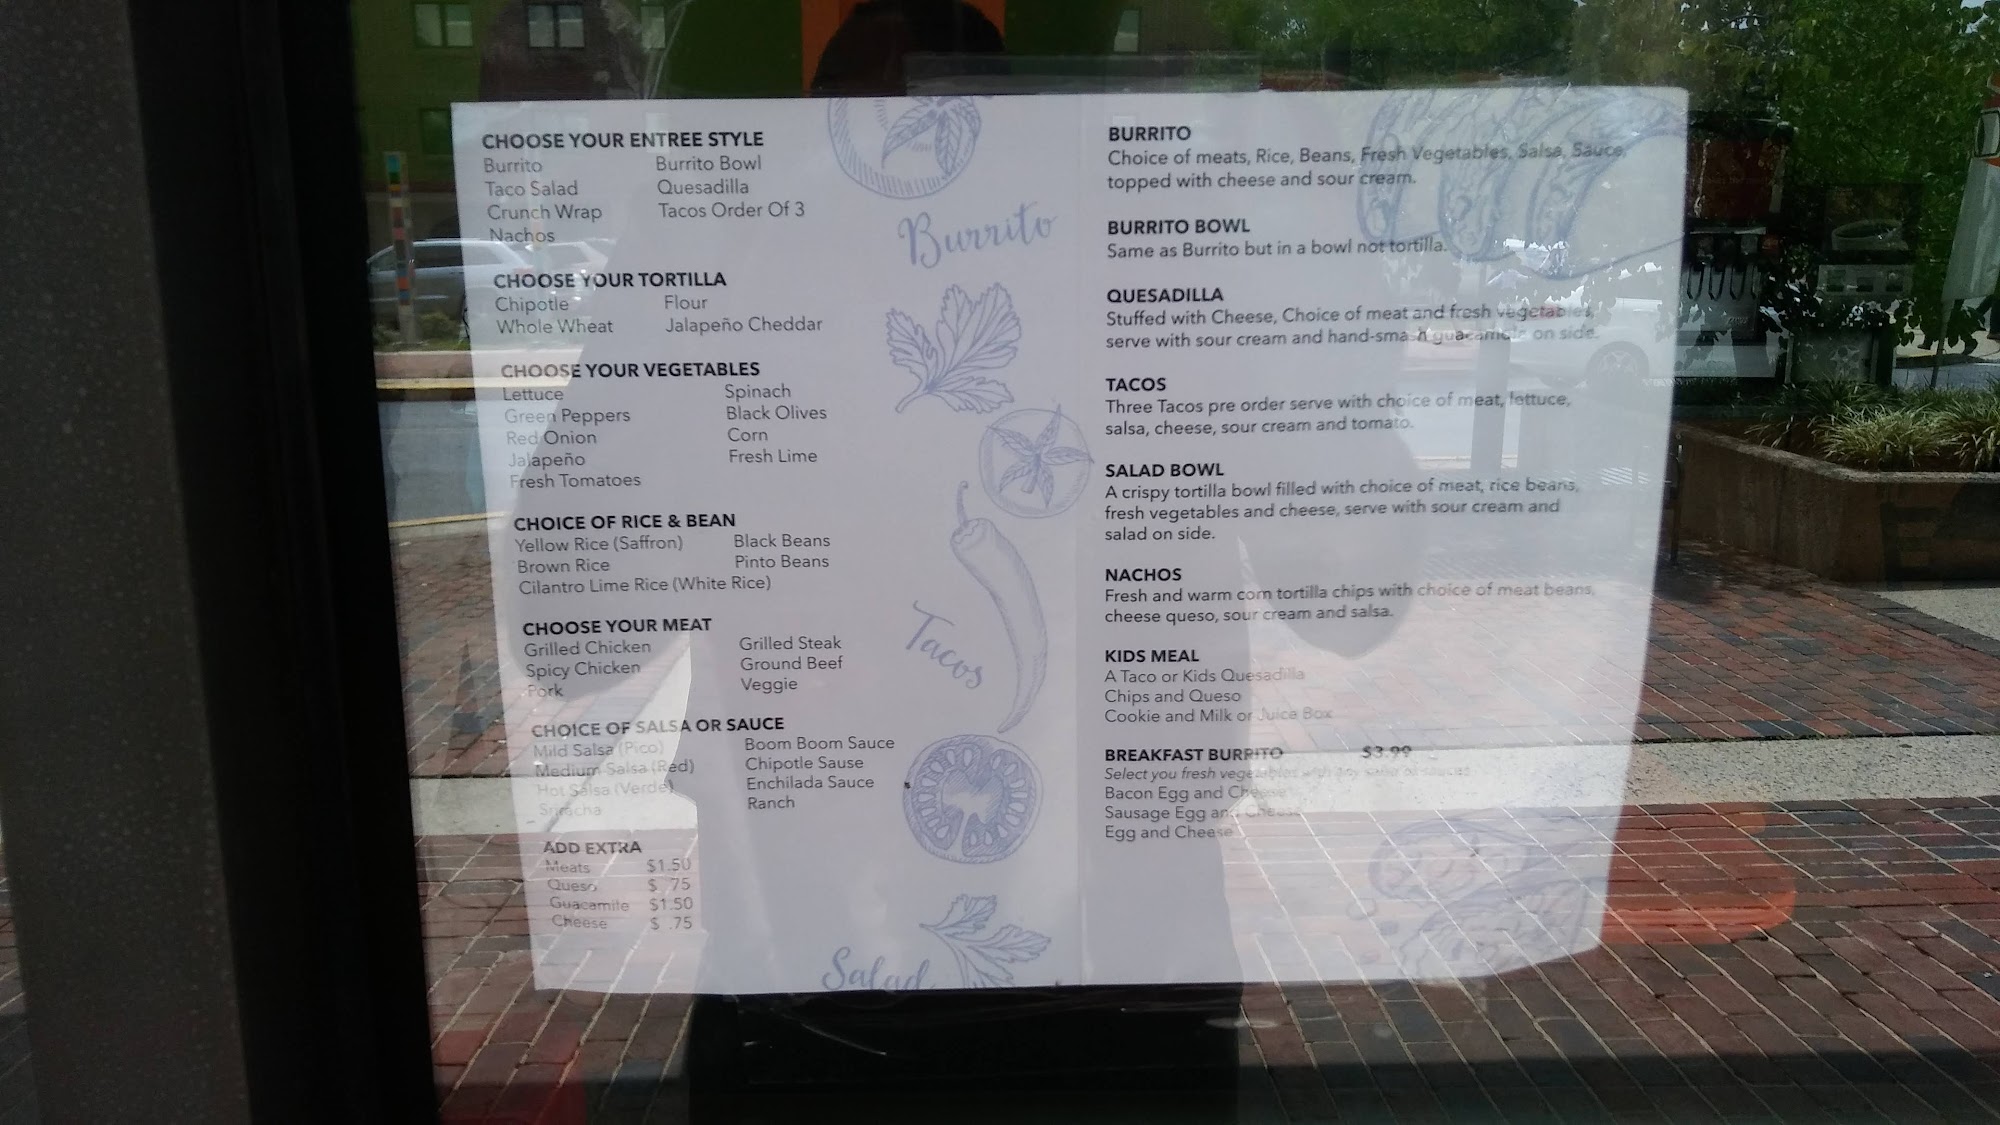 CHOOSE YOUR ENTREE STYLE
Burrito Burrito Bowl
Taco Salad Quesadilla
Crunch Wrap Tacos Order Of 3
Nachos
CHOOSE YOUR TORTILLA
Chipotle Flour
Whole Wheat Jalapeño Cheddar
CHOOSE YOUR VEGETABLES
Lettuce Spinach
Green Peppers Black Olives
Red Onion Corn
Jalapeño Fresh Lime
Fresh Tomatoes
CHOICE OF RICE & BEAN
Yellow Rice (Saffron) Black Beans
Brown Rice Pinto Beans
Cilantro Lime Rice (White Rice)
CHOOSE YOUR MEAT
Grilled Chicken Grilled Steak
Spicy Chicken Ground Beef
Pork Veggie
CHOICE OF SALSA OR SAUCE
Mild Salsa (Pico) Boom Boom Sauce
Medium Salsa (Red) Chipotle Sause
Hot Salsa (Verde) Enchilada Sauce
Sriracha Ranch
ADD EXTRA
Meats $1.50
Queso $ .75
Guacamile $1.50
Cheese $ .75
Burrito
Tacos
Salad
BURRITO
Choice of meats, Rice, Beans, Fresh Vegetables, Salsa, Sauce,
topped with cheese and sour cream.
BURRITO BOWL
Same as Burrito but in a bowl not tortilla.
QUESADILLA
Stuffed with Cheese, Choice of meat and fresh vegetables,
serve with sour cream and hand-smash guacamole on side.
TACOS
Three Tacos pre order serve with choice of meat, lettuce,
salsa, cheese, sour cream and tomato.
SALAD BOWL
A crispy tortilla bowl filled with choice of meat, rice beans,
fresh vegetables and cheese, serve with sour cream and
salad on side.
NACHOS
Fresh and warm corn tortilla chips with choice of meat beans,
cheese queso, sour cream and salsa.
KIDS MEAL
A Taco or Kids Quesadilla
Chips and Queso
Cookie and Milk or Juice Box
BREAKFAST BURRITO $3.99
Select you fresh vegetables with any salsa or sauces
Bacon Egg and Cheese
Sausage Egg and Cheese
Egg and Cheese